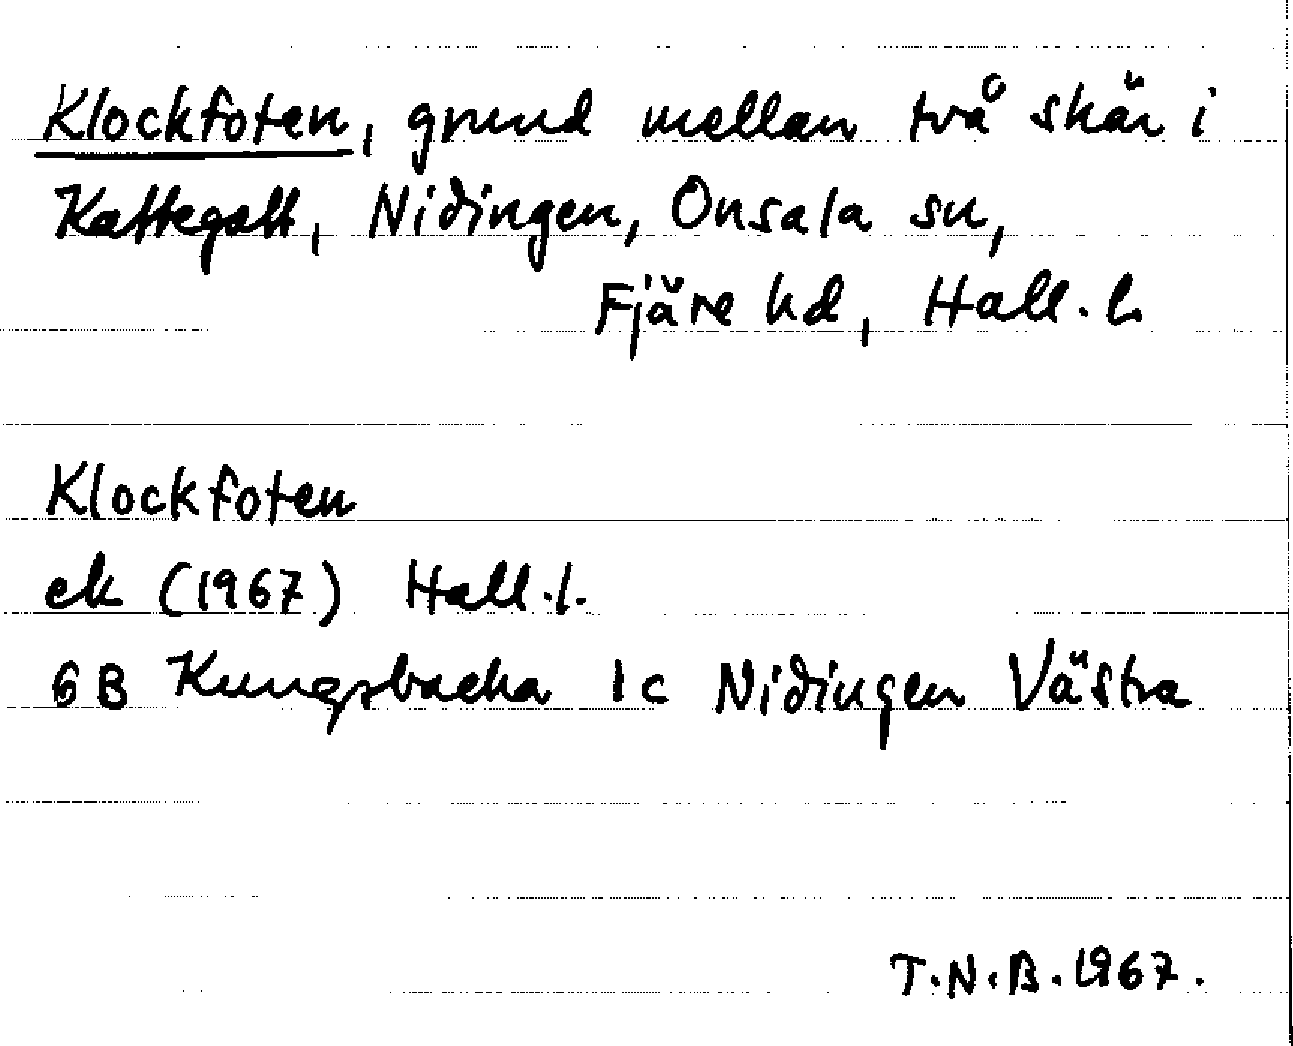 Klockfoten, grund mellan två skär i
Kattegatt, Nidingen, Onsala sn,
Fjäre hd, Hall. l.
Klockfoten
ek (1967) Hall. l.
6B Kungsbacka 1c Nidingen Västra
T.N.B. 1967.